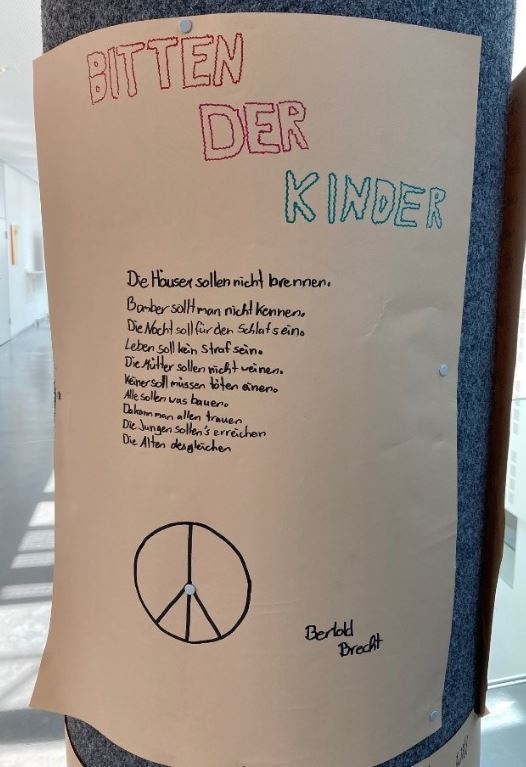 BITTEN
DER
KINDER
Die Häuser sollen nicht brennen.
Bomber sollt man nicht kennen.
Die Nacht soll für den Schlaf sein.
Leben soll kein Straf sein.
Die Mütter sollen nicht weinen.
Keiner soll müssen töten einen.
Alle sollen was bauen.
Da kann man allen trauen
Die Jungen sollen's erreichen
Die Alten desgleichen
Bertold
Brecht